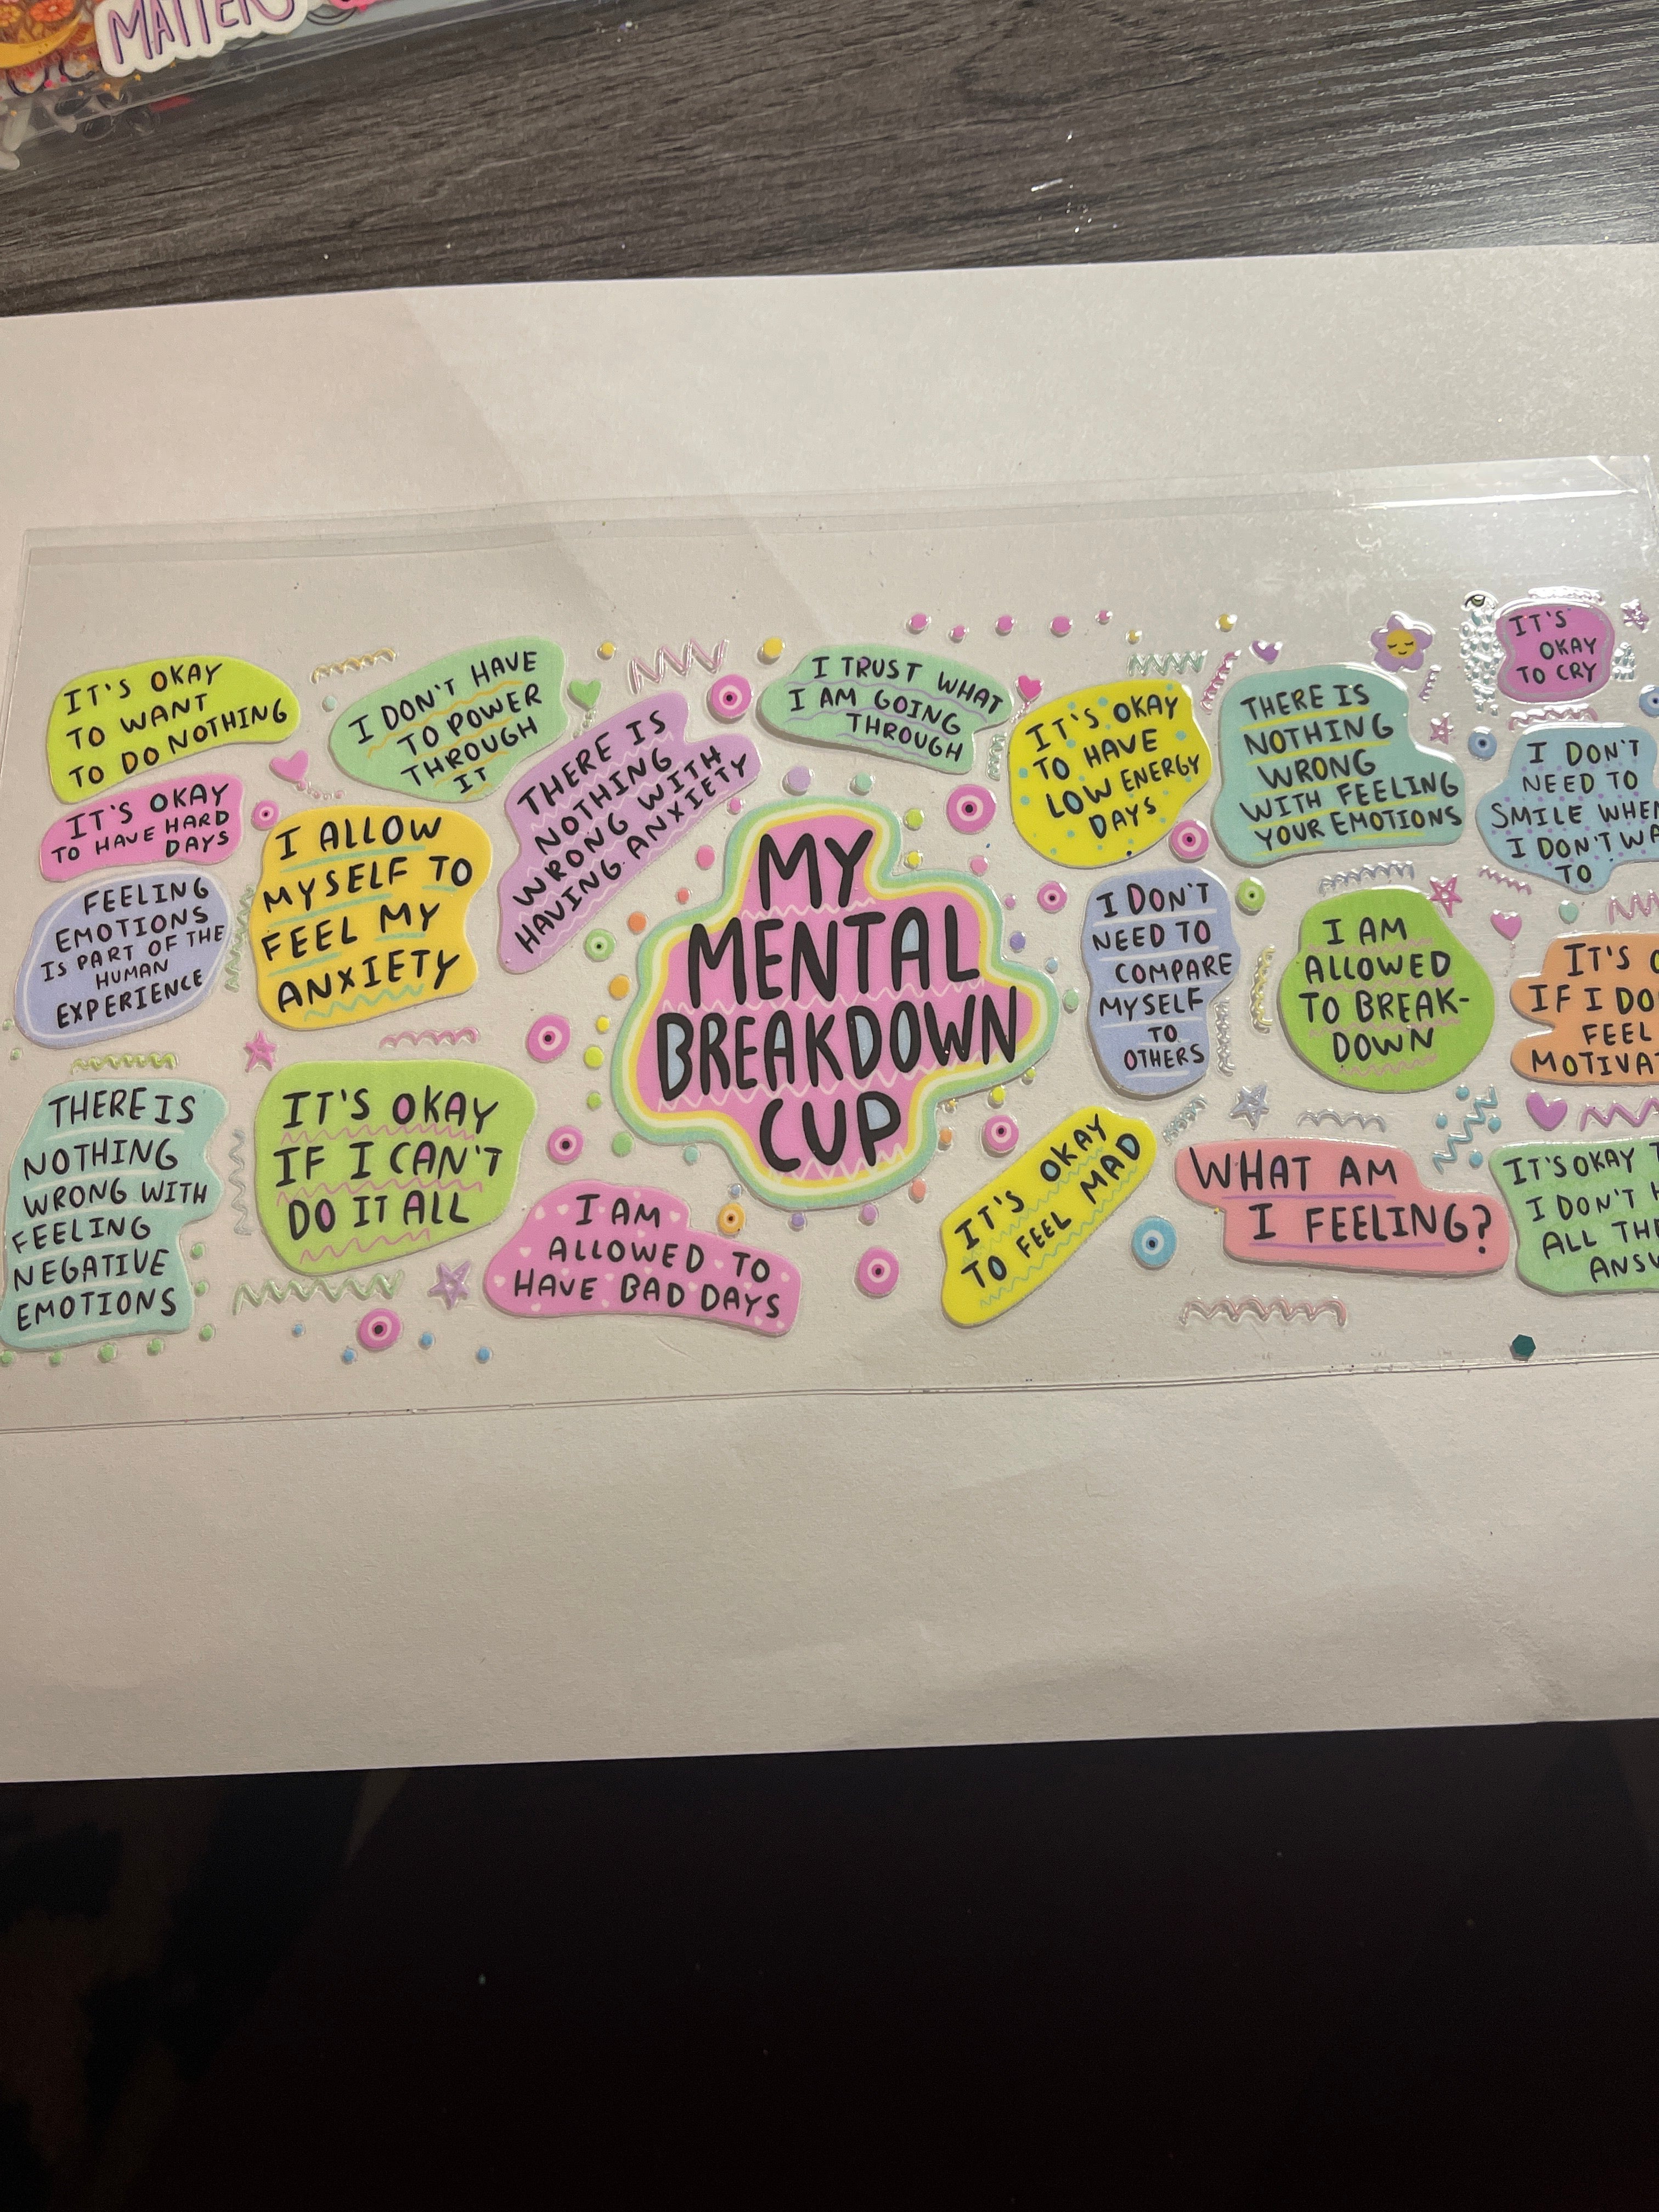 MATTERS
IT'S OKAY
TO WANT
TO DO NOTHING
I DON'T HAVE
TO POWER
THROUGH
IT
THERE IS
NOTHING
WRONG WITH
HAVING ANXIETY
I TRUST WHAT
I AM GOING
THROUGH
IT'S OKAY
TO HAVE
LOW ENERGY
DAYS
THERE IS
NOTHING
WRONG
WITH FEELING
YOUR EMOTIONS
IT'S
OKAY
TO CRY
IT'S OKAY
TO HAVE HARD
DAYS
I ALLOW
MYSELF TO
FEEL MY
ANXIETY
FEELING
EMOTIONS
IS PART OF THE
HUMAN
EXPERIENCE
MY
MENTAL
BREAKDOWN
CUP
I DON'T
NEED TO
COMPARE
MYSELF
TO
OTHERS
I AM
ALLOWED
TO BREAK-
DOWN
I DON'T
NEED TO
SMILE WHEN
I DON'T WA
TO
IT'S
IF I DO
FEEL
MOTIVAT
THERE IS
NOTHING
WRONG WITH
FEELING
NEGATIVE
EMOTIONS
IT'S OKAY
IF I CAN'T
DO IT ALL
I AM
ALLOWED TO
HAVE BAD DAYS
IT'S OKAY
TO FEEL MAD
WHAT AM
I FEELING?
IT'S OKAY
I DON'T
ALL THE
ANSW